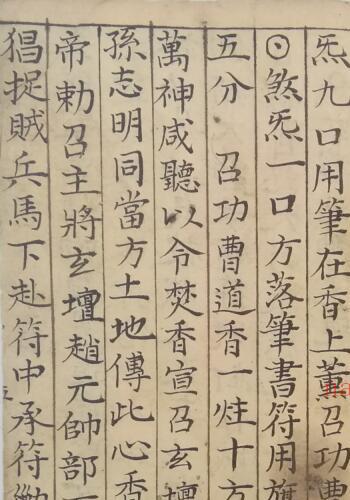 炁九口用筆在香上薰召功曹
⊙煞炁一口方落筆書符用旗
五分　召功曹道香一炷十方
萬神咸聽以令焚香宣召玄壇
孫志明同當方土地傳此心香
帝勅召主將玄壇趙元帥部下
猖捉賊兵馬下赴符中承符